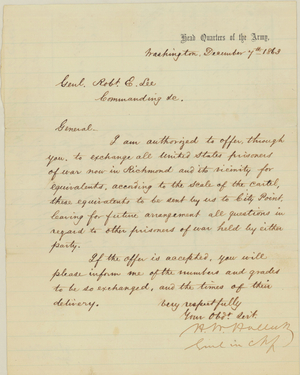 Head Quarters of the Army,
Washington, December 7th 1863
Genl. Robt. E. Lee
Commanding &c.
General.
I am authorized to offer, through
you, to exchange all United States prisoners
of war now in Richmond and its vicinity for
equivalents, according to the scale of the cartel,
these equivalents to be sent by us to City Point,
leaving for future arrangement all questions in
regard to other prisoners of war held by either
party.
If the offer is accepted, you will
please inform me of the numbers and grades
to be so exchanged, and the times of their
delivery.
Very respectfully
Your Obdt. Servt.
H W Halleck
Genl in Chf